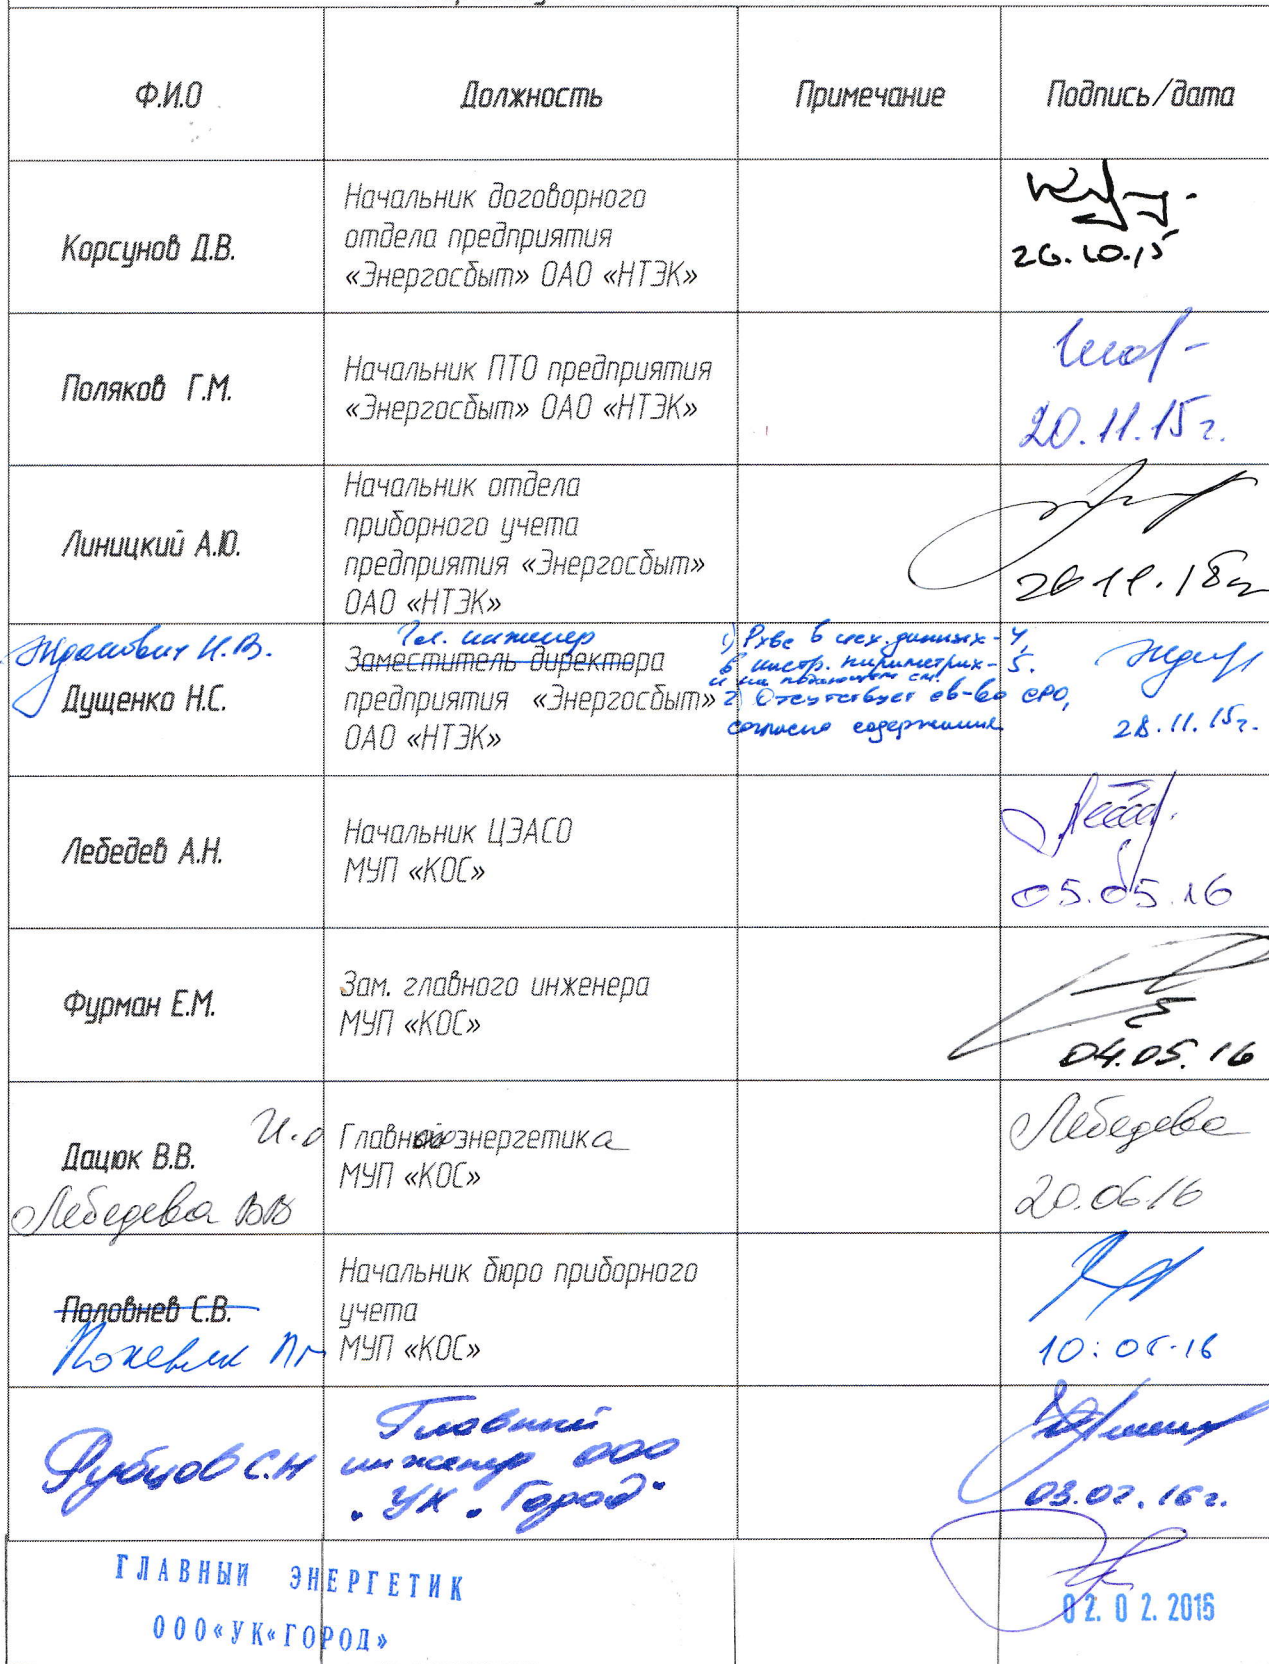 Ф.И.О Должность Примечание Подпись/дата
Корсунов Д.В.
Начальник договорного
отдела предприятия
«Энергосбыт» ОАО «НТЭК»
26.10.15
Поляков Г.М.
Начальник ПТО предприятия
«Энергосбыт» ОАО «НТЭК»
20.11.15г.
Линицкий А.Ю.
Начальник отдела
приборного учета
предприятия «Энергосбыт»
ОАО «НТЭК»
Жданович Н.В.
Дущенко Н.С.
Гл. инженер
Заместитель директора
предприятия «Энергосбыт»
ОАО «НТЭК»
1) Рхвс в исх. данных - 4,
в настр. параметрах - 5.
2) Отсутствует св-во СРО,
согласно содержания
28.11.15г.
Лебедев А.Н.
Начальник ЦЭАСО
МУП «КОС»
05.05.16
Фурман Е.М.
Зам. главного инженера
МУП «КОС»
04.05.16
Дацюк В.В.
Лебедева ВВ
И.о Главного энергетика
МУП «КОС»
Лебедева
20.06.16
Половнев С.В.
Начальник бюро приборного
учета
МУП «КОС»
Рубцов С.Н
Главный
инженер ООО
"УК "Город"
03.02.16г.
ГЛАВНЫЙ ЭНЕРГЕТИК
ООО«УК«ГОРОД»
02.02.2016